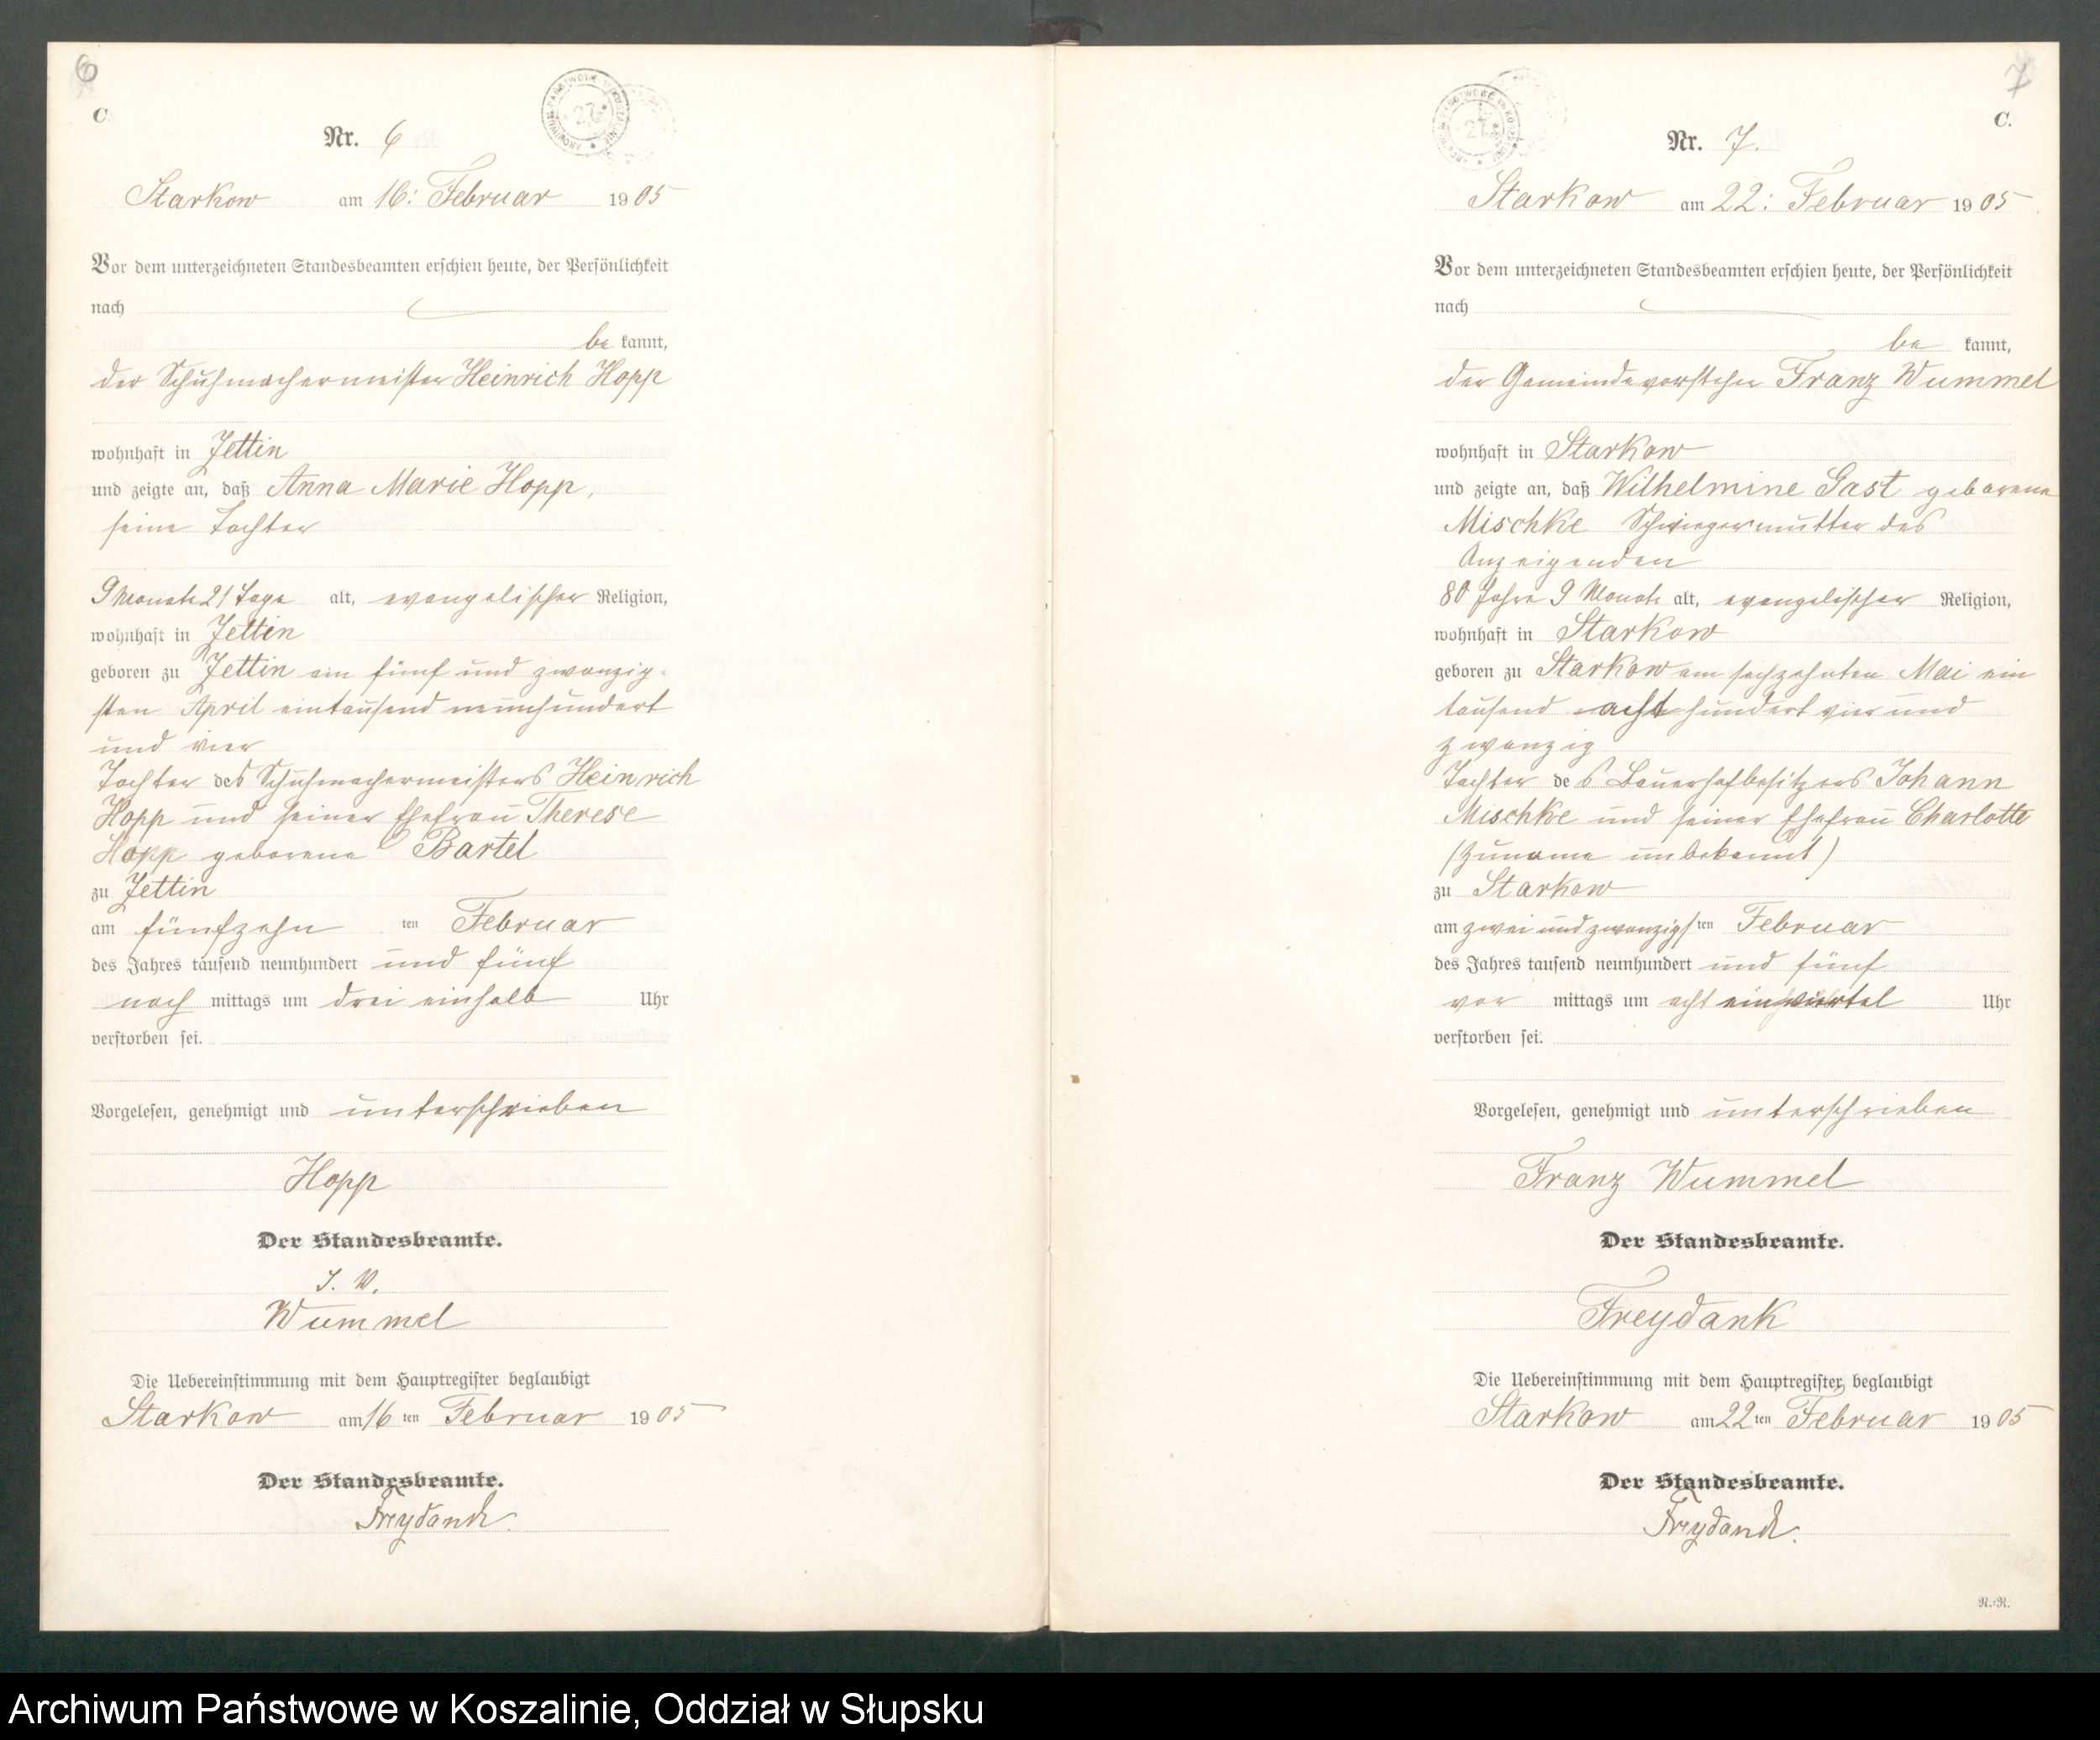 6
C.
Nr. 6
Starkow am 16: Februar 1905
Vor dem unterzeichneten Standesbeamten erschien heute, der Persönlichkeit
nach
be kannt,
der Schuhmachermeister Heinrich Hopp
wohnhaft in Jettin
und zeigte an, daß Anna Marie Hopp,
seine Tochter
9 Monate 21 Tage alt, evangelischer Religion,
wohnhaft in Jettin
geboren zu Jettin am fünf und zwanzig-
sten April eintausend neunhundert
und vier
Tochter des Schuhmachermeisters Heinrich
Hopp und seiner Ehefrau Therese
Hopp geborene Bartel
zu Jettin
am fünfzehn ten Februar
des Jahres tausend neunhundert und fünf
nach mittags um drei einhalb Uhr
verstorben sei.
Vorgelesen, genehmigt und unterschrieben
Hopp
Der Standesbeamte.
I. V.
Wummel
Die Uebereinstimmung mit dem Hauptregister beglaubigt
Starkow am 16 ten Februar 1905
Der Standesbeamte.
Freydank.
7
C.
Nr. 7.
Starkow am 22: Februar 1905
Vor dem unterzeichneten Standesbeamten erschien heute, der Persönlichkeit
nach
be kannt,
der Gemeindevorsteher Franz Wummel
wohnhaft in Starkow
und zeigte an, daß Wilhelmine Gast geborene
Mischke Schwiegermutter des
Anzeigenden
80 Jahre 9 Monate alt, evangelischer Religion,
wohnhaft in Starkow
geboren zu Starkow am sechzehnten Mai ein
tausend acht hundert vier und
zwanzig
Tochter des Bauerhofbesitzers Johann
Mischke und seiner Ehefrau Charlotte
(Zuname unbekannt)
zu Starkow
am zwei und zwanzigs ten Februar
des Jahres tausend neunhundert und fünf
vor mittags um acht einviertel Uhr
verstorben sei.
Vorgelesen, genehmigt und unterschrieben
Franz Wummel
Der Standesbeamte.
Freydank
Die Uebereinstimmung mit dem Hauptregister beglaubigt
Starkow am 22 ten Februar 1905
Der Standesbeamte.
Freydank.
R.-R.
Archiwum Państwowe w Koszalinie, Oddział w Słupsku